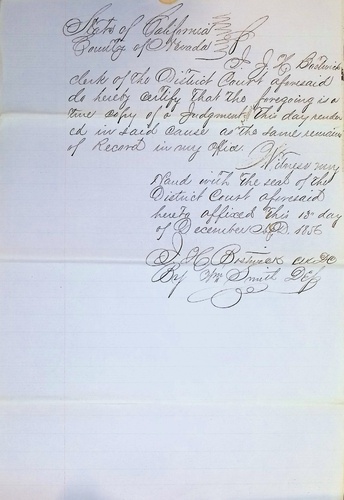 State of California
County of Nevada
I J. H. Bostwick
clerk of the District Court aforesaid
do hereby certify that the foregoing is a
true copy of a Judgment this day render
ed in said cause as the same remains
of Record in my office. Witness my
Hand with the seal of the
District Court aforesaid
hereto affixed this 13th day
of December A.D. 1856
J. H. Bostwick Clk DC
By Wm Smith Dty